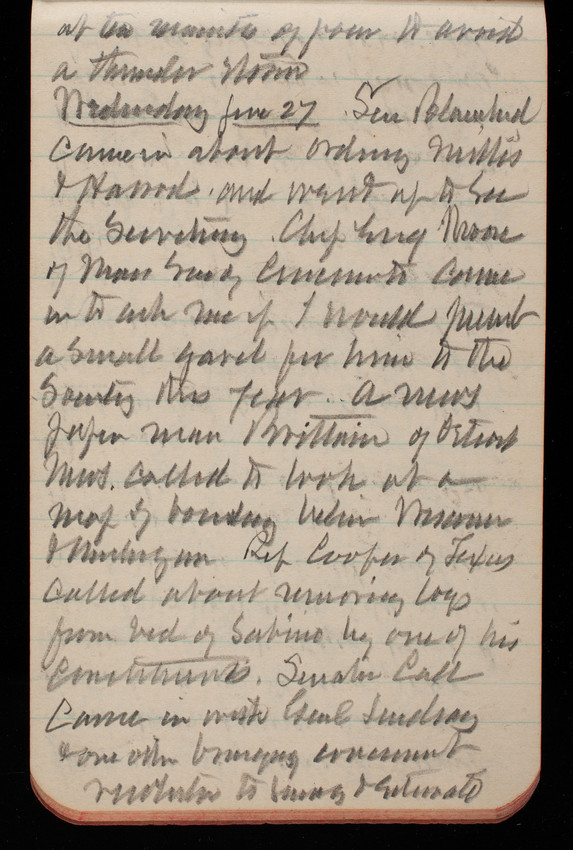 at ten minutes of four to avoid
a thunder storm
Wednesday June 27 Sen Blanchard
came in about ordering Millis
& Harrod and went up to see
the Secretary. Chf Eng Moore
of Mass Soc of Cincinnati came
in to ask me if I would present
a small gavel for him to the
Society this year. A news
paper man Brittain of Detroit
News called to look at a
map of boundary between
& Michigan Rep Cooper of Texas
called about removing logs
from bed of Sabine by one of his
constituents. Senator Call
came in with Genl Lindsay
& one other bringing concurrent
resolution to survey & estimate